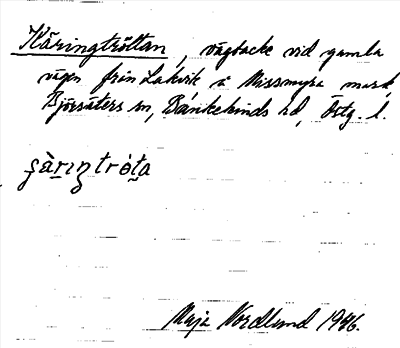 Käringtröttan, vägbacke vid gamla
vägen från Lakvik å Missmyra mark,
Björsäters sn, Bankekinds hd, Östg. l.
ʂàrıŋtrȯ́ta
Maja Nordlund 1946.